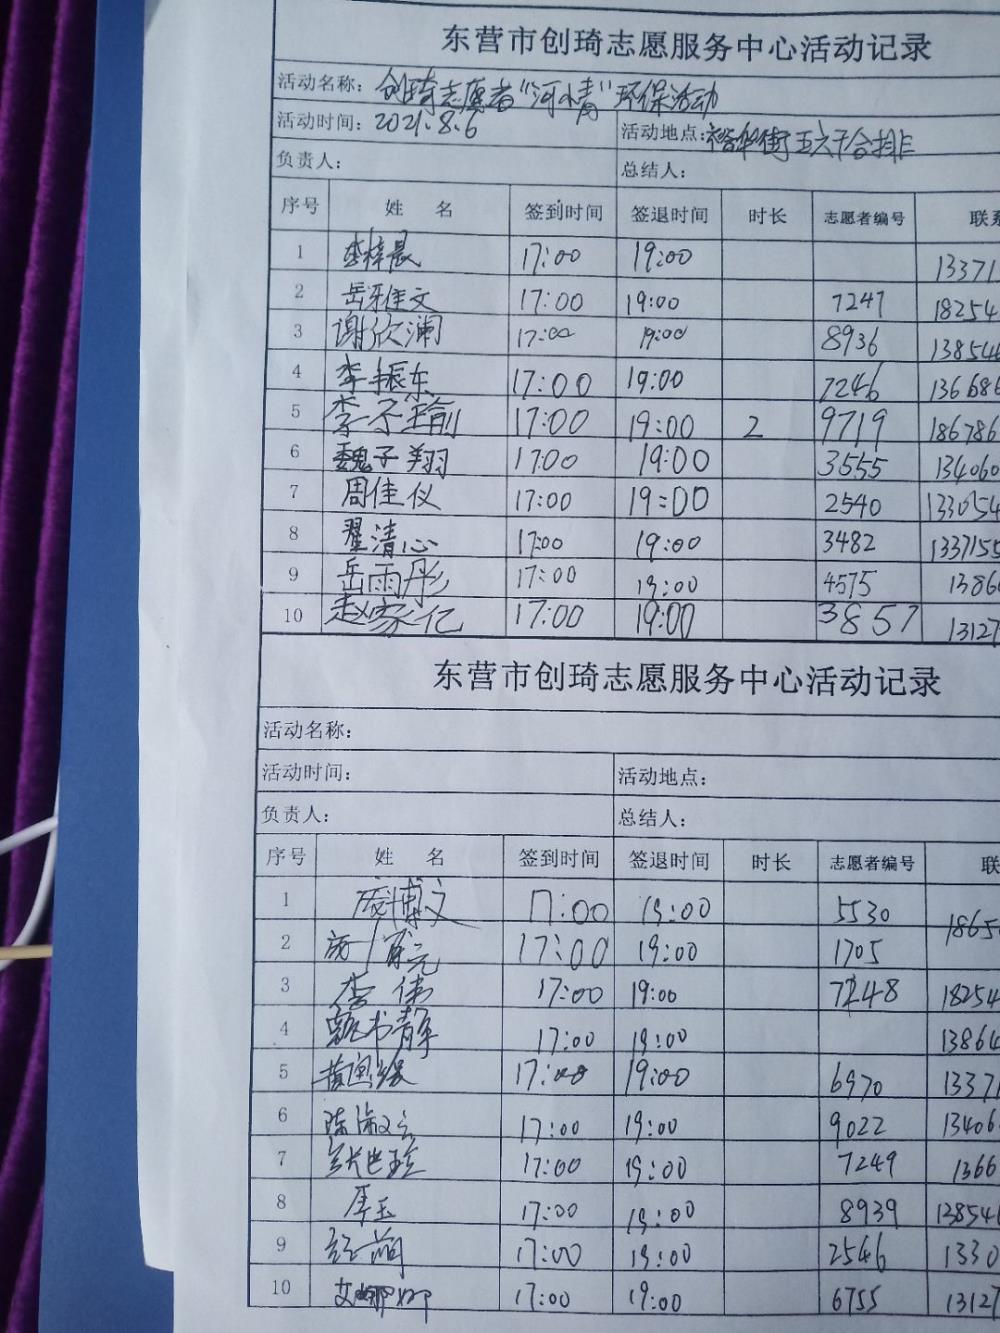 东营市创琦志愿服务中心活动记录
活动名称：创琦志愿者“河小青”环保活动
活动时间：2021.8.6 活动地点：裕华街五六干合排
负责人： 总结人：
序号 姓 名 签到时间 签退时间 时长 志愿者编号 联系
1 李梓晨 17:00 19:00 13371
2 岳雅文 17:00 19:00 7247 18254
3 谢欣澜 17:00 19:00 8936 138544
4 李振东 17:00 19:00 7246 136686
5 李子瑜 17:00 19:00 2 9719 186786
6 魏子翔 17:00 19:00 3555 134060
7 周佳仪 17:00 19:00 2540 133054
8 翟清心 17:00 19:00 3482 1337155
9 岳雨彤 17:00 19:00 4575 1386
10 赵家亿 17:00 19:00 3857 13127
东营市创琦志愿服务中心活动记录
活动名称：
活动时间： 活动地点：
负责人： 总结人：
序号 姓 名 签到时间 签退时间 时长 志愿者编号 联
1 博文 17:00 19:00 5530 1865
2 17:00 19:00 1705
3 李伟 17:00 19:00 7248 18254
4 书静 17:00 19:00 13864
5 17:00 19:00 6970 13371
6 17:00 19:00 9022 13406
7 17:00 19:00 7249 1366
8 17:00 19:00 8939 138546
9 17:00 19:00 2546 1330
10 17:00 19:00 6755 13127